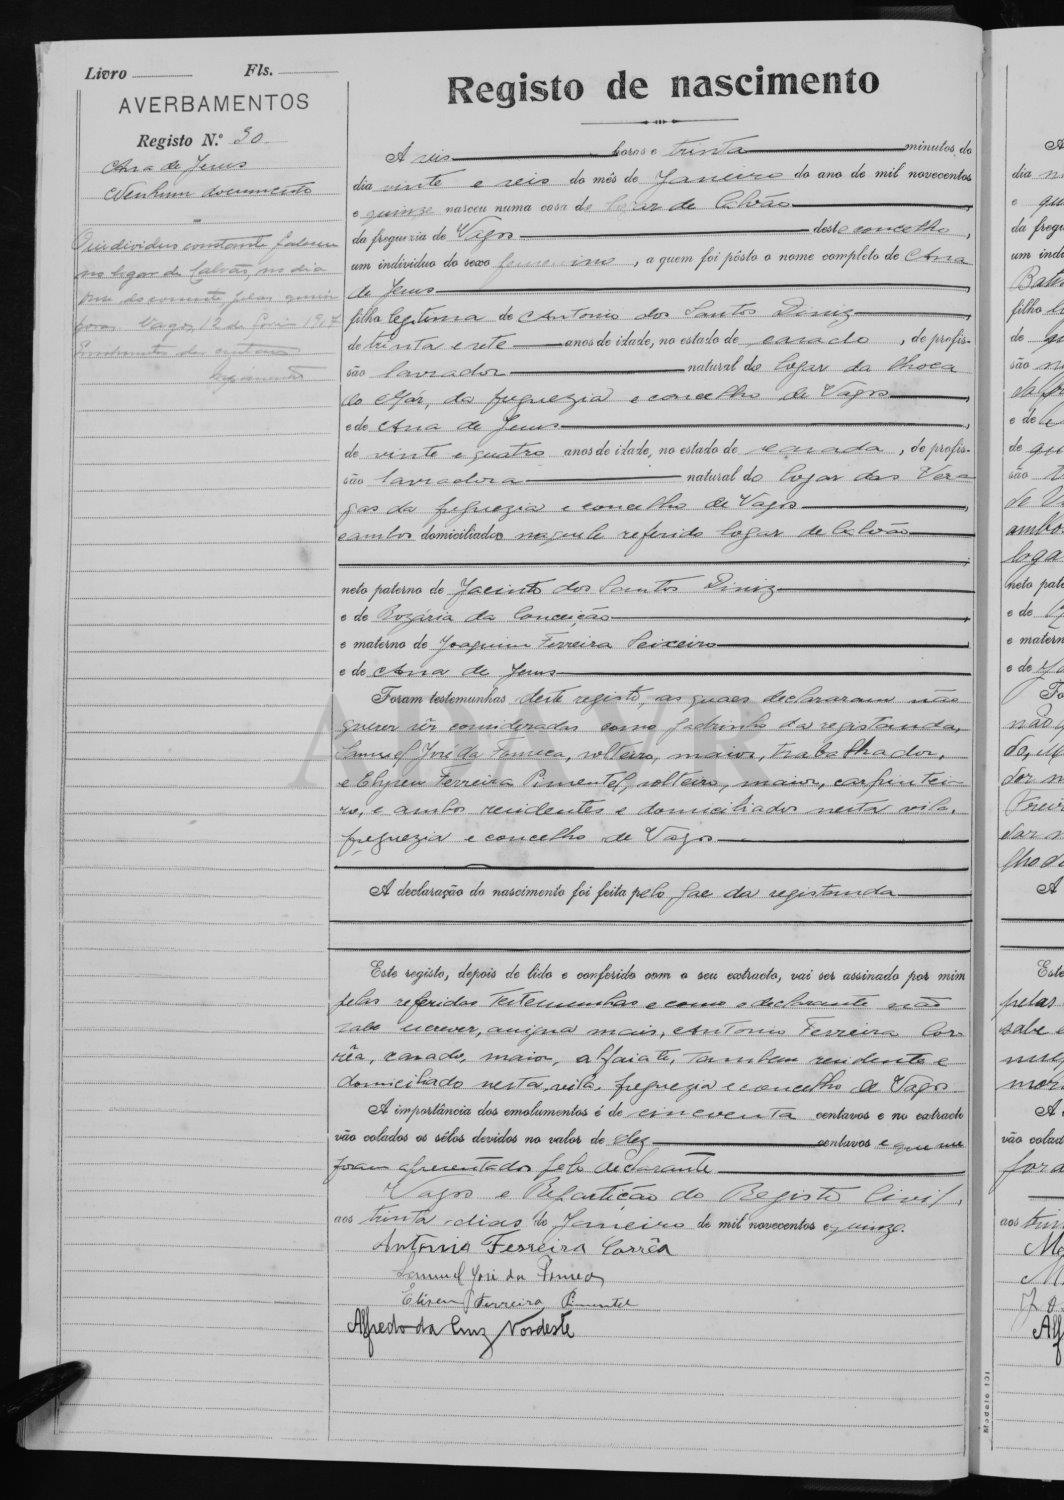 Livro Fls.
AVERBAMENTOS
Registo N.º 30
Ana de Jesus
Nenhum documento
O individuo constante faleceu
no logar de Calvão, no dia
do corrente pelas
horas. Vagos, 12 de
Registo de nascimento
A seis horas e trinta minutos do
dia vinte e seis do mês de Janeiro do ano de mil novecentos
e quinze nasceu numa casa do logar de Calvão
da freguezia de Vagos deste concelho,
um individuo do sexo femenino, a quem foi pôsto o nome completo de Ana
de Jesus
filha legitima de Antonio dos Santos Diniz
de trinta e sete anos de idade, no estado de casado, de profis-
são lavrador natural do logar da Choca
do Mar, da freguezia e concelho de Vagos
e de Ana de Jesus
de vinte e quatro anos de idade, no estado de casada, de profis-
são lavradora natural do logar das Vera
gas da freguezia e concelho de Vagos
e ambos domiciliados naquele referido logar de Calvão
neto paterno de Jacinto dos Santos Diniz
e de Rozária da Conceição
e materno de Joaquim Ferreira Seixeiro
e de Ana de Jesus
Foram testemunhas deste registo, as quaes declararam não
querer sêr consideradas como padrinhos da registanda,
Samuel José da Fonseca, solteiro, maior, trabalhador,
e Elyseu Ferreira Pimentel, solteiro, maior, carpintei-
ro, e ambos residentes e domiciliados nesta vila,
freguezia e concelho de Vagos
A declaração do nascimento foi feita pelo pae da registanda
Este registo, depois de lido e conferido com o seu extracto, vai ser assinado por mim
pelas referidas testemunhas e como o declarante não
sabe escrever, assigna mais, Antonio Ferreira Cor-
rêa, casado, maior, alfaiate, tambem residente e
domiciliado nesta vila, freguezia e concelho de Vagos
A importância dos emolumentos é de cincoenta centavos e no extracto
vão colados os sêlos devidos no valor de dez centavos e que me
foram apresentados pelo declarante
Vagos e Repartição do Registo Civil,
aos trinta dias do Janeiro de mil novecentos e quinze.
Antonio Ferreira Corrêa
Samuel José da Fonseca
Eliseu Ferreira Pimentel
Alfredo da Cruz Nordeste
Modelo 101